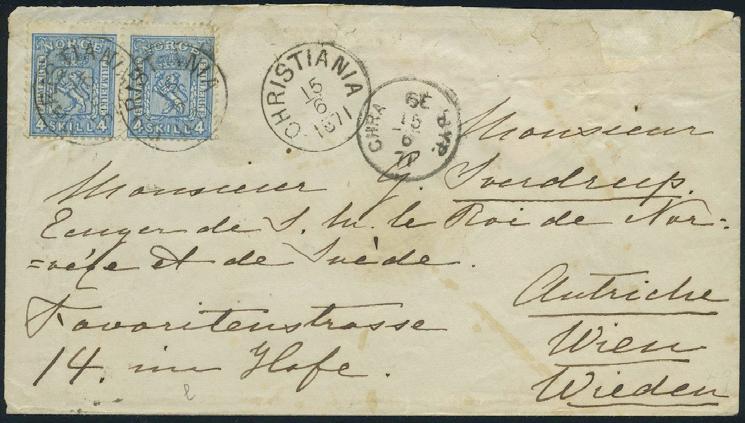 NORGE NORGE
4 SKILL 4 4 SKILL 4
CHRISTIANIA
15
6
1871
CHRA
15
6
Monsieur
Monsieur G. Sverdrup.
S. M. le Roi de Nor=
=vège et de Suède.
Favoritenstrasse
14. im Hofe.
Autriche
Wien
Wieden